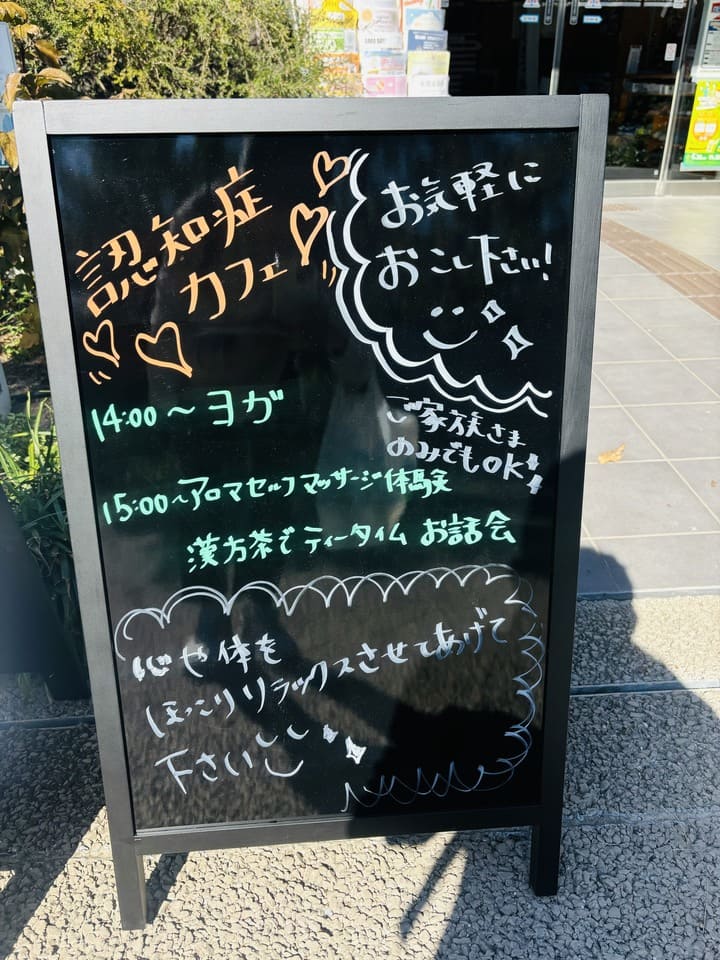 認知症
カフェ
お気軽に
おこし下さい!
14:00～ヨガ
ご家族さま
のみでもOK!
15:00～アロマセルフマッサージ体験
漢方茶でティータイム お話会
心や体を
ほっこりリラックスさせてあげて
下さい